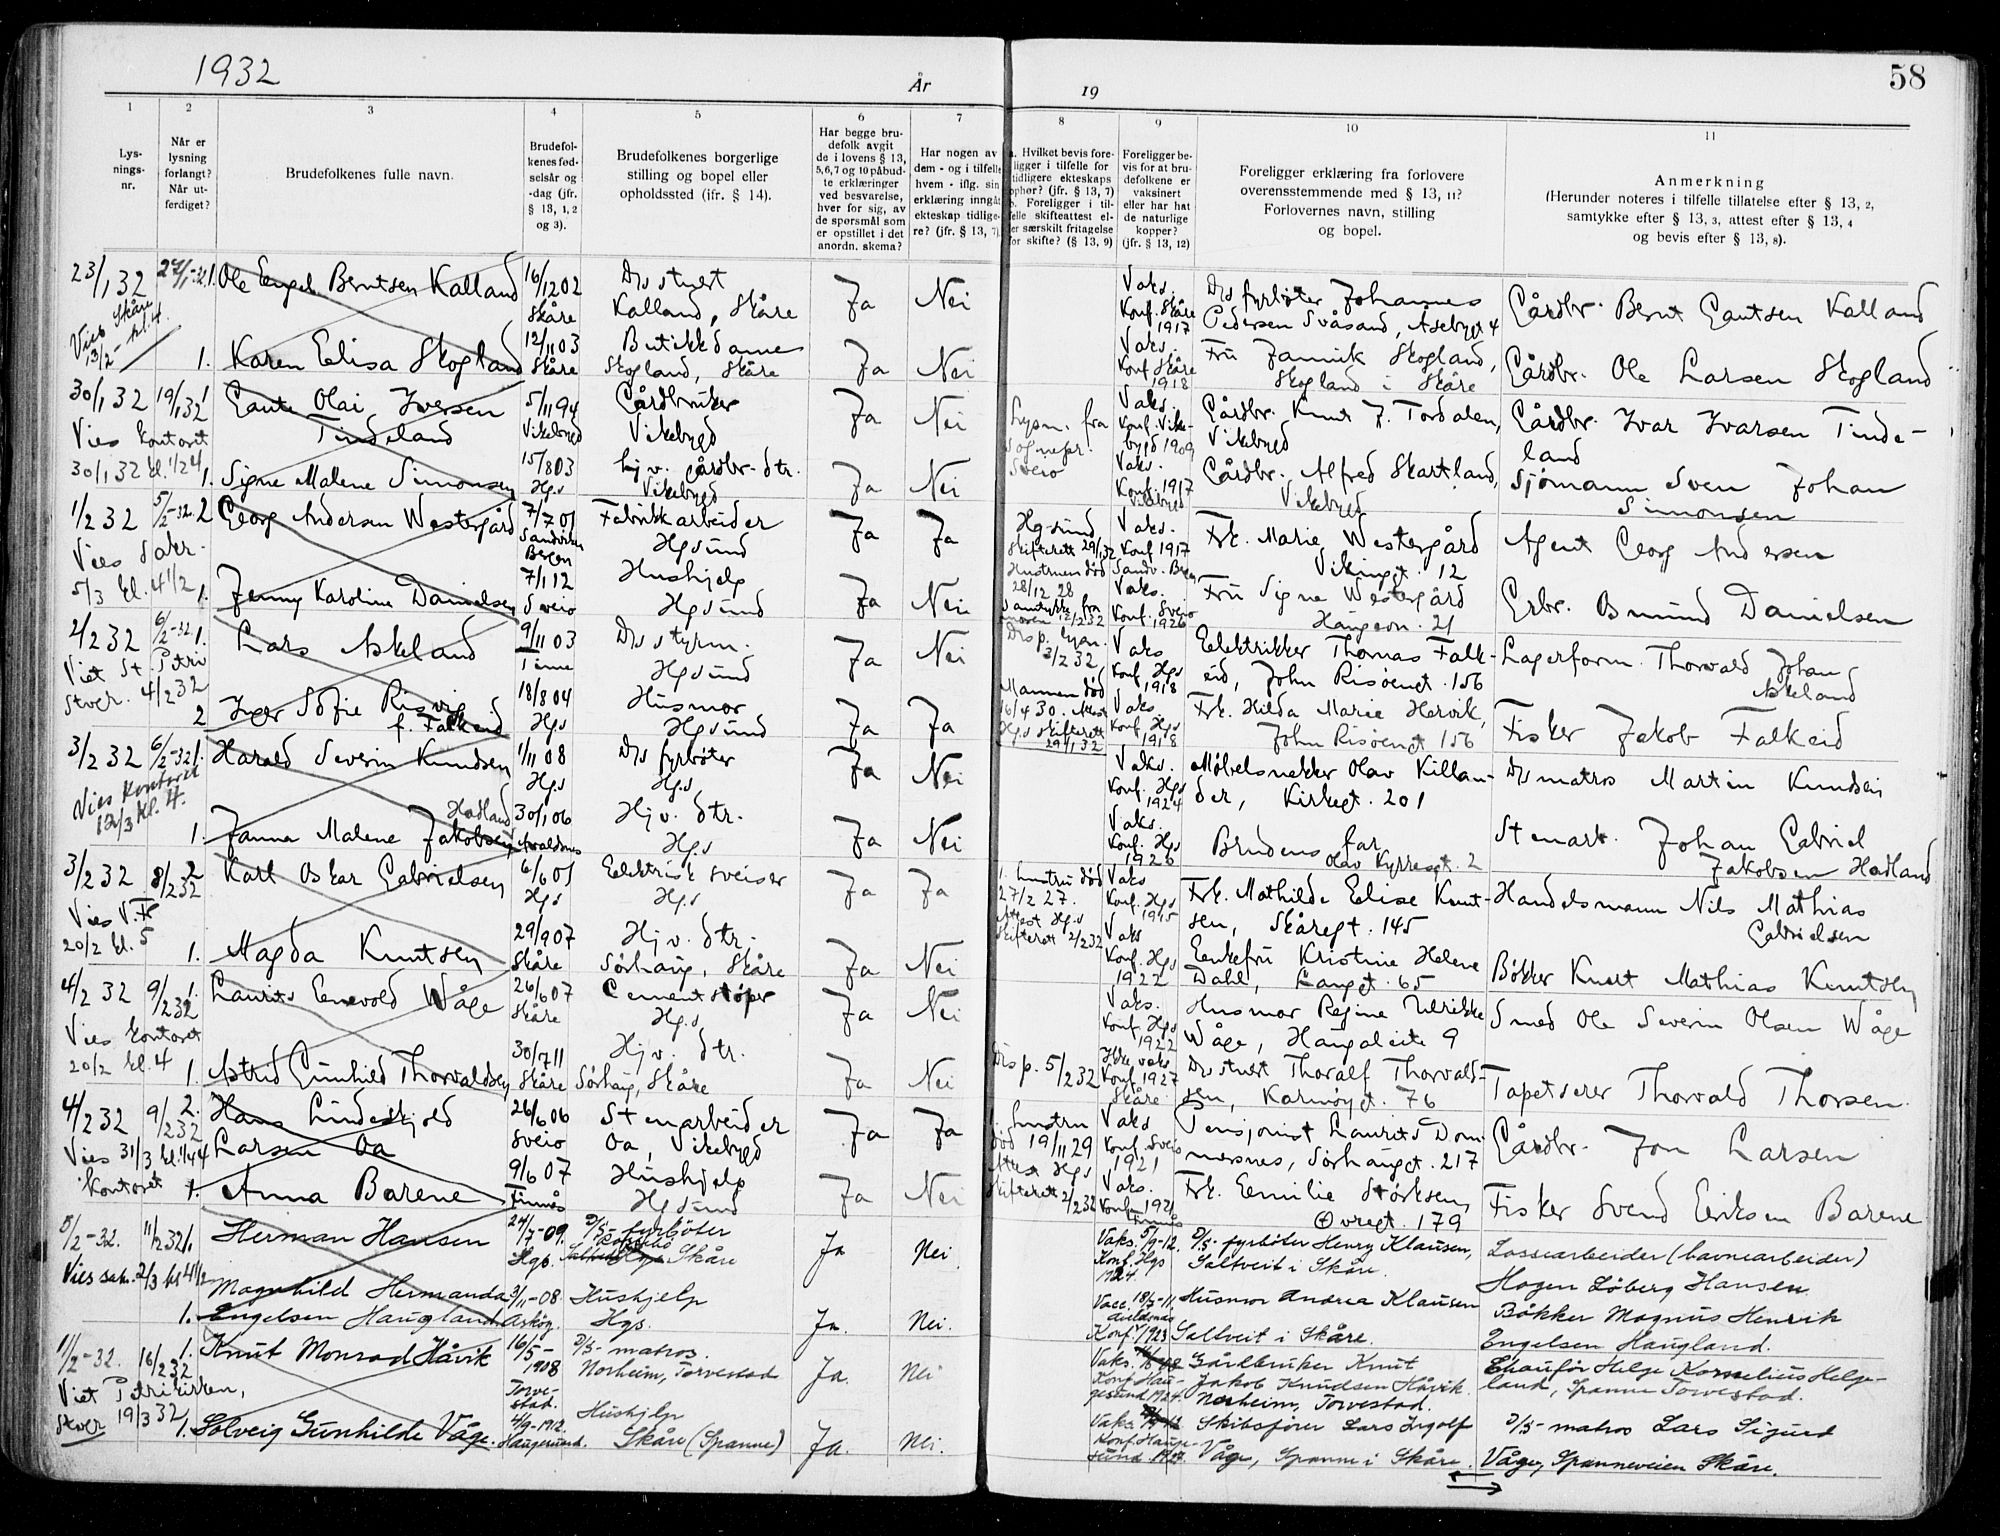 1932
År
19
58
1
2
3
4
5
6
7
8
9
10
11
Lys-
nings-
nr.
Når er
lysning
forlangt?
Når ut-
ferdiget?
Brudefolkenes fulle navn.
Brudefol-
kenes fød-
selsår og
-dag (jfr.
§ 13, 1, 2
og 3).
Brudefolkenes borgerlige
stilling og bopel eller
opholdssted (ifr. § 14).
Har begge bru-
defolk avgit
de i lovens § 13,
5,6,7 og 10 påbud-
te erklæringer
ved besvarelse,
hver for sig, av
de spørsmål som
er opstillet i det
anordn. skema?
Har nogen av
dem - og i tilfelle
hvem - iflg. sin
erklæring inngått
ekteskap tidlige-
re? (jfr. § 13, 7).
a. Hvilket bevis fore-
ligger i tilfelle for
tidligere ekteskaps
ophør? (jfr. § 13, 7)
b. Foreligger i til-
felle skifteattest el-
ler særskilt fritagelse
for skifte? (§ 13, 9)
Foreligger be-
vis for at bru-
defolkene er
vaksinert
eller har hat
de naturlige
kopper?
(jfr. § 13, 12)
Foreligger erklæring fra forlovere
overensstemmende med § 13, 11?
Forlovernes navn, stilling
og bopel.
Anmerkning
(Herunder noteres i tilfelle tillatelse efter § 13, 2,
samtykke efter § 13, 3, attest efter § 13, 4
og bevis efter § 13, 8).
23/1 32 1. Ole Engel. Berntsen Kalland 16/12 02 Skåre D/s stuert Kalland, Skåre Ja Nei Vaks. Konf. Skåre 1917 D/s fyrbøter Johannes Pedersen Svåsand, Gårdbr. Bernt Gautsen Kalland
Vies Skåre 13/2 - kl. 4. 1. Karen Elisa Skogland 12/11 03 Skåre Butikkdame Skogland, Skåre Ja Nei Vaks. Konf. Skåre 1918 Fru Jannik Skogland, Skogland i Skåre Gårdbr. Ole Larsen Skogland
30/1 32 19/1 32 1 Gaute Olai Iversen Tindeland 5/11 94 Vikebygd Gårdbruker Vikebygd Ja Nei Lysn. fra sognepr. Sveio Vaks. Konf. Vike-bygd 1909 Gårdbr. Knut J. Tordalen, Vikebygd Gårdbr. Ivar Ivarsen Tinde-land
Vies kontoret 30/1 32 kl. 1/2 4 1. Signe Malene Simonsen 15/8 03 Hgs hj v. gårdbr. dtr. Vikebygd Ja Nei Vaks. Konf. 1917 Vikebygd Gårdbr. Alfred Skartland, Vikebygd Sjømann Sven Johan Simonsen
1/2 32 5/2-32. 2 Georg Andersen Westergård 7/7 01 Sandviken Bergen Fabrikkarbeider Hgsund Ja Ja Hg-sund Skifterett 29/1 32 Hustruen død 28/12 28 Vaks. Konf. 1917 Sandv. Bergen Frk. Marie Westergård Vikingt. 12 Agent Georg Andersen
Vies Sakr. 5/3 kl. 4 1/2 1. Jenny Karoline Danielsen 7/1 12 Sveio Hushjelp Hgsund Ja Nei Samtykke fra moren 12/2 32 Vaks. Konf. Sveio 1926 Fru Signe Westergård Haugevn. 21 Gbr. Åmund Danielsen
2/2 32 6/2-32. 1. Lars Askeland 9/11 03 D/s styrm. Hgsund Ja Nei Disp. lysn. 3/2 32 Vaks Konf. Hgs 1918 Elektrikker Thomas Falk-eid, John Risøengt. 156 Lagerform. Thorvald Johan Askeland
Viet St. Petri Stvgr. 4/2 32 2 Inger Sofie Risvig f. Falkeid 18/8 04 Hgs Husmor Hgsund Ja Ja Mannen død 16/4 30. Attest Hgs skifterett 29/1 32 Vaks. Konf. Hgs 1918 Frk. Hilda Marie Hervik, John Risøengt 156 Fisker Jakob Falkeid
3/2 32 6/2-32 1. Harald Severin Knudsen 1/11 08 Hgs D/s fyrbøter Hgs Ja Nei Vaks. Konf. Hgs 1924 Møbelsnekker Olav Killan-der, Kirkegt. 201 D/s matros Martin Knudsen
Vies kontoret 12/3 kl. 4. 1. Janna Malene Jakobsen Hadland 30/1 06 Avaldsnes Hj v. dtr. Hgs Ja Nei Vaks. Konf. Hgs 1920 Brudens far Olav Kyrresgt. 2 Stenarb. Johan Gabriel Jakobsen Hadland
3/2 32 8/2 32 2 Karl Oskar Gabrielsen 6/6 01 Hgs Elektrisk sveiser Hgs Ja Ja 1. hustru død 27/2 27. Attest Hgs skifterett 2/2 32 Vaks Konf. Hgs 1915 Frk. Mathilde Elise Knut-sen, Skåregt. 145 Handelsmann Nils Mathias Gabrielsen
Vies V.F. 20/2 kl. 5 1. Magda Knutsen 29/9 07 Skåre Hj v. dtr. Sørhaug, Skåre Ja Nei Vaks Konf. Hgs 1922 Enkefru Kristine Helene Dahl, Langgt. 65 Bøkker Knut Mathias Knutsen
4/2 32 9/2 32 1. Laurits Enevold Våge 26/6 07 Skåre Cementstøper Hgs Ja Nei Vaks. Konf. Hgs 1922 Husmor Regine Ulrikke Våge, Haugaleite 9 Smed Ole Severin Olsen Våge
Vies kontoret 20/2 kl. 4 1. Astrid Gunhild Thorvaldsen 30/7 11 Skåre Hj v. dtr. Sørhaug, Skåre Ja Nei Disp. 5/2 32 Ikke vaks. Konf. 1927 Skåre D/s stuert Thoralf Thorvald-sen, Karmøygt. 76 Tapetserer Thorvald Thorsen.
4/2 32 9/2 32 2. Hans Lindeskjold Larsen Oa 26/6 06 Sveio Stenarbeider Oa, Vikebygd Ja Ja 1. hustru død 19/11 29 Attest Hgs skifterett 2/2 32 Vaks Konf. Sveio 1921 Pensjonist Laurits Dom-mersnes, Sørhauggt. 217 Gårdbr. Jon Larsen
Vies 31/3 kl. 1/4 4 kontoret 1. Anna Barene 9/6 07 Finnås Hushjelp Hgsund Ja Nei Vaks. Konf. 1921 Finnås Frk. Emilie Størksen, Øvregt. 179 Fisker Svend Eriksen Barene
5/2-32. 11/2 32 1. Herman Hansen 24/7-09. Hgs. D/S- fyrbøter Skåre Ja Nei. Vaks. 5/9-12. Konf. Hgs 1924. D/S- fyrbøter Henry Klausen, Saltveit i Skåre. Lossearbeider (havnearbeider) Hagen Løberg Hansen.
Vies sakr. 2/3 kl 4 1/2 1. Magnhild Hermanda Engelsen Haugland 3/11-08. Askøy. Hushjelp Hgs. Ja. Nei. Vacc. 18/7-11. Avaldsnes Konf. 1923 Husmor Andrea Klausen Saltveit i Skåre. Bøkker Magnus Henrik Engelsen Haugland.
11/2-32. 16/2 32 1. Knut Monrad Håvik 16/5-1908 Torve-stad. D/S- matros. Norheim, Torvestad Ja. Nei Vaks. Konf. Hau-gesund 1924. Gårdbruker Knut Jakob Knudsen Håvik. Norheim, Torvestad. Chaufør Helge Kornelius Helge-land, Spanne Torvestad.
Viet Petrikirken, Stvgr 19/3 32 1. Solveig Gunhilde Våge. 4/9-1912. Haugesund. Hushjelp Skåre (Spanne) Ja. Nei. Vaks. Konf. Hauge-sund Skibsfører Lars Ingolf Våge, Spanne i Skåre. D/S- matros Lars Sigurd Våge, Spanneveien Skåre.